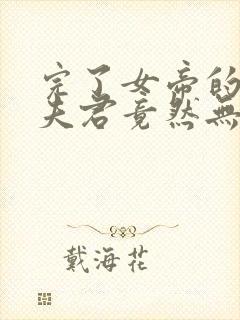 完了女帝的
夫君竟然無
戴海花